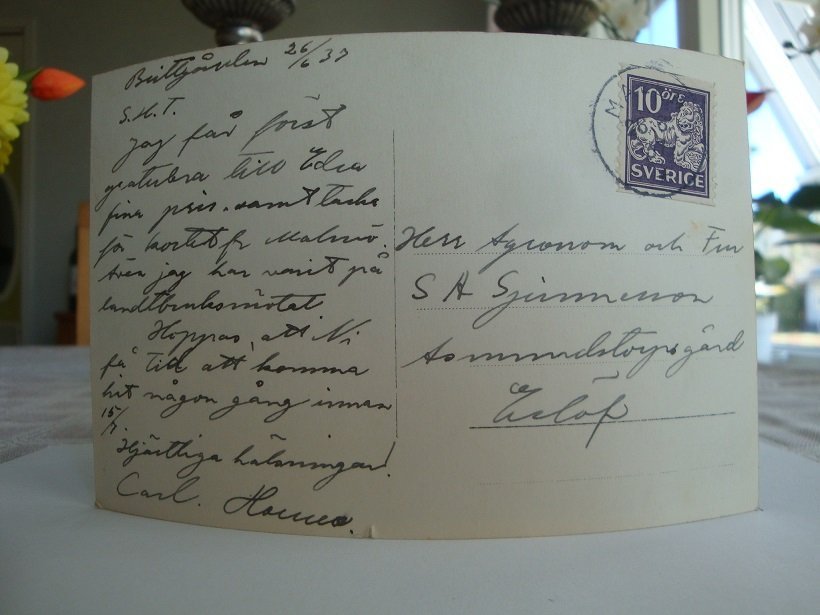 26/6 37
S.H.T.
Jag får först
gratulera till Edra
fina pris. samt tacka
för kortet fr Malmö.
Även jag har varit på
landtbruksmötet
Hoppas att Ni
få tid att komma
hit någon gång innan
15/7.
Hjärtliga hälsningar!
Carl.
10 ÖRE
SVERIGE
Herr Agronom och Fru
S A
Asmundstorpsgård
Eslöf